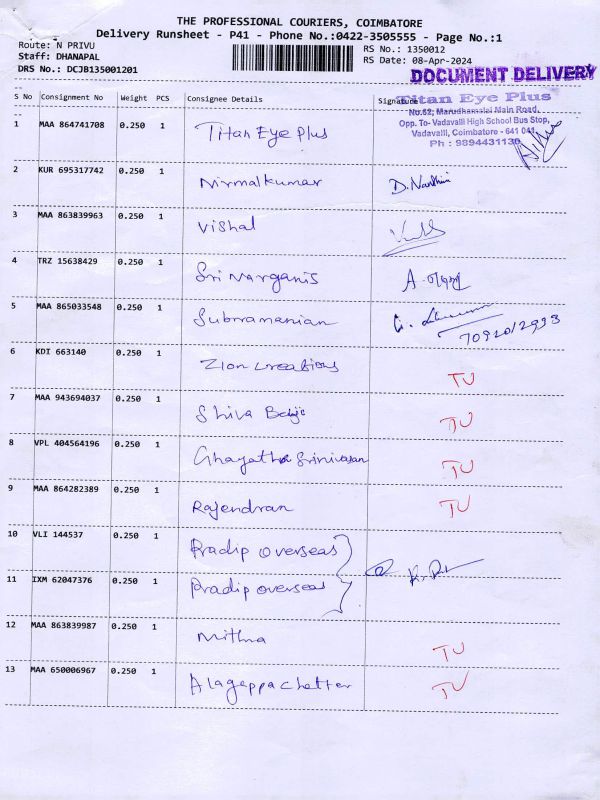 THE PROFESSIONAL COURIERS, COIMBATORE
Delivery Runsheet - P41 - Phone No.:0422-3505555 - Page No.:1
Route: N PRIVU RS No.: 1350012
Staff: DHANAPAL RS Date: 08-Apr-2024
DRS No.: DCJB135001201
DOCUMENT DELIVERY
S No Consignment No Weight PCS Consignee Details Signature
Titan Eye Plus
No.62, Marudhamalai Main Road,
Opp. To- Vadavalli High School Bus Stop,
Vadavalli, Coimbatore - 641 041.
Ph : 9894431136
1 MAA 864741708 0.250 1 Titan Eye Plus
2 KUR 695317742 0.250 1 Nirmalkumar D. Nanthini
3 MAA 863839963 0.250 1 Vishal
4 TRZ 15638429 0.250 1 Sri Narganis A
5 MAA 865033548 0.250 1 Subramanian
7092012993
6 KDI 663140 0.250 1 Zion Creations TU
7 MAA 943694037 0.250 1 Shiva TU
8 VPL 404564196 0.250 1 Ghayathr Srinivasan TU
9 MAA 864282389 0.250 1 Rajendran TU
10 VLI 144537 0.250 1 Pradip overseas
11 IXM 62047376 0.250 1 Pradip overseas
12 MAA 863839987 0.250 1 Mithra TU
13 MAA 650006967 0.250 1 Alagappa Chetter TU